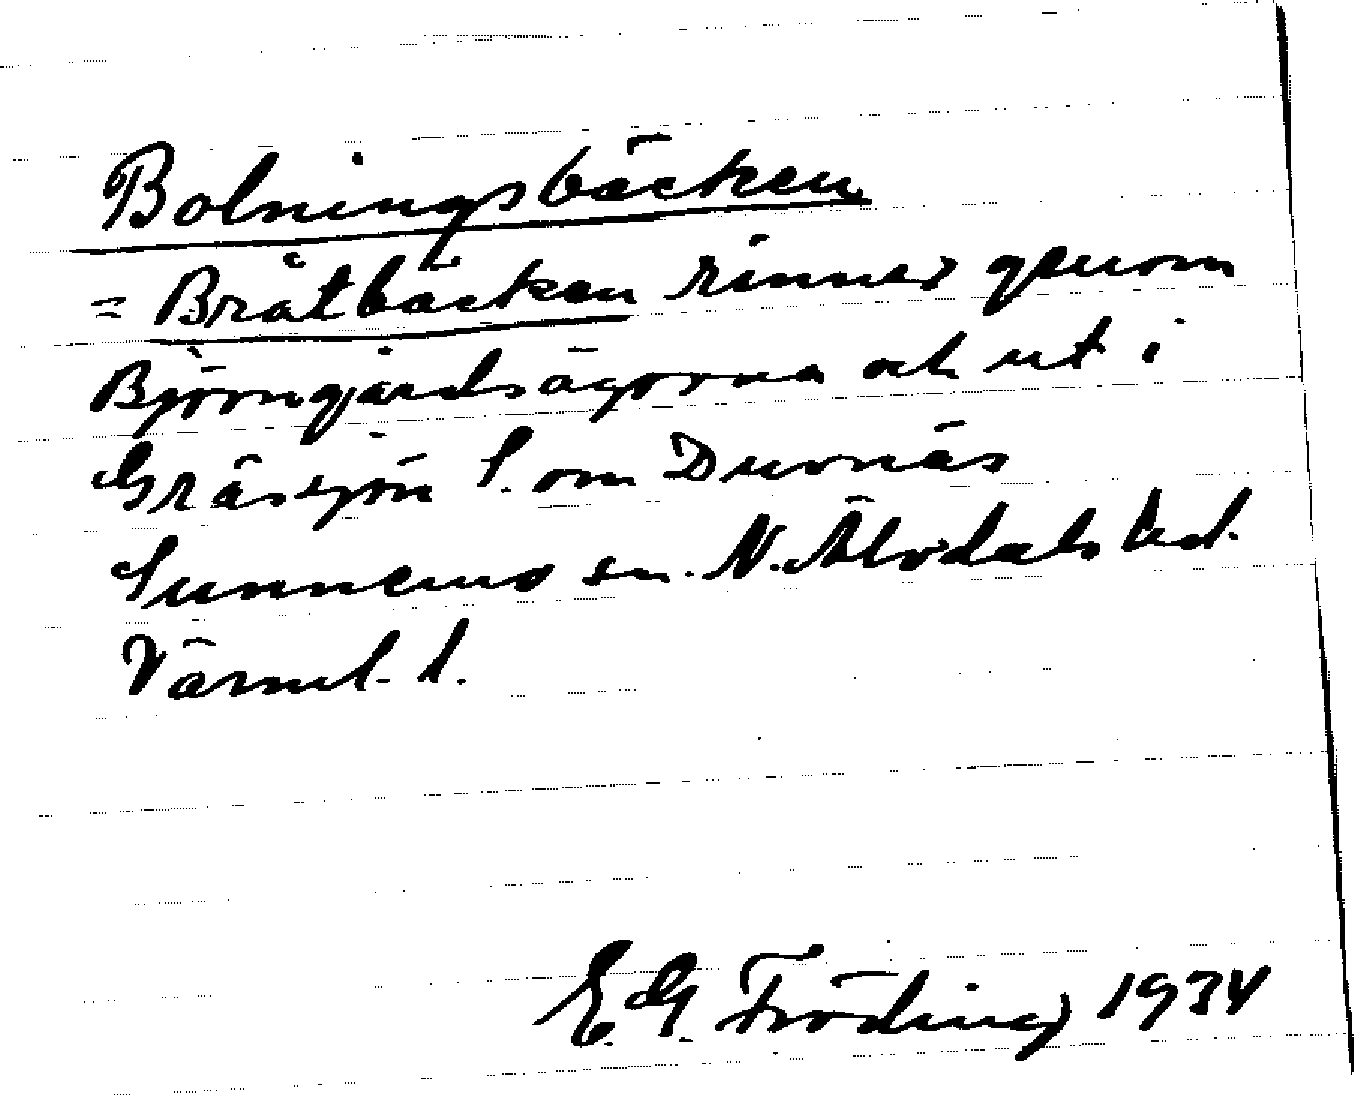 Bolningsbäcken
= Bråtbäcken rinner genom
Björngårdsägorna och ut i
Grässjön S. om Duvnäs
Sunnemo sn. N. Älvdals hd.
Värml. l.
E. G. Fröding 1934